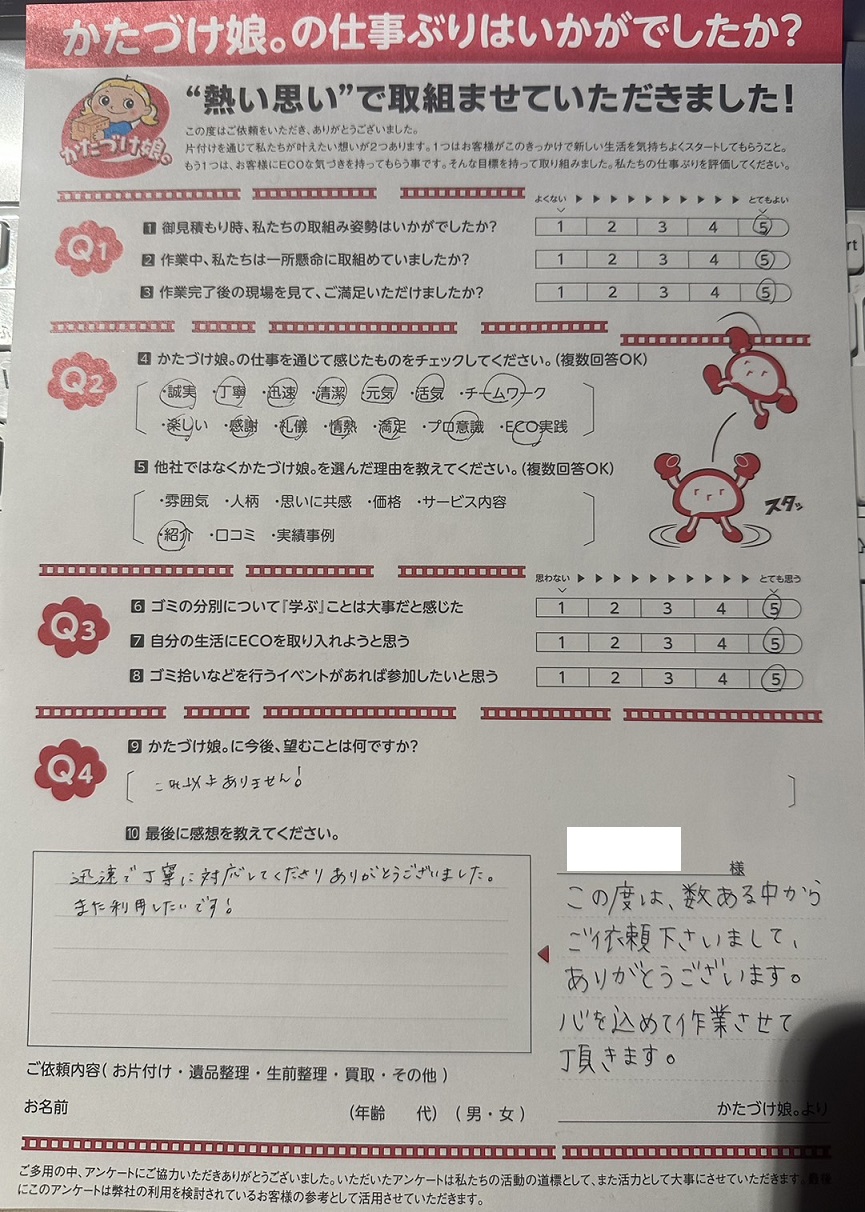 かたづけ娘。の仕事ぶりはいかがでしたか?
かたづけ娘。
“熱い思い”で取組ませていただきました!
この度はご依頼をいただき、ありがとうございました。
片付けを通じて私たちが叶えたい想いが2つあります。1つはお客様がこのきっかけで新しい生活を気持ちよくスタートしてもらうこと。
もう1つは、お客様にECOな気づきを持ってもらう事です。そんな目標を持って取り組みました。私たちの仕事ぶりを評価してください。
よくない とてもよい
Q1
1 御見積もり時、私たちの取組み姿勢はいかがでしたか? 1 2 3 4 5
2 作業中、私たちは一所懸命に取組めていましたか? 1 2 3 4 5
3 作業完了後の現場を見て、ご満足いただけましたか? 1 2 3 4 5
Q2
4 かたづけ娘。の仕事を通じて感じたものをチェックしてください。(複数回答OK)
・誠実 ・丁寧 ・迅速 ・清潔 ・元気 ・活気 ・チームワーク
・楽しい ・感謝 ・礼儀 ・情熱 ・満足 ・プロ意識 ・ECO実践
5 他社ではなくかたづけ娘。を選んだ理由を教えてください。(複数回答OK)
・雰囲気 ・人柄 ・思いに共感 ・価格 ・サービス内容
・紹介 ・口コミ ・実績事例
スタッ
思わない とても思う
Q3
6 ゴミの分別について『学ぶ』ことは大事だと感じた 1 2 3 4 5
7 自分の生活にECOを取り入れようと思う 1 2 3 4 5
8 ゴミ拾いなどを行うイベントがあれば参加したいと思う 1 2 3 4 5
Q4
9 かたづけ娘。に今後、望むことは何ですか?
これ以上ありません!
10 最後に感想を教えてください。
迅速で丁寧に対応してくださりありがとうございました。
また利用したいです!
様
この度は、数ある中から
ご依頼下さいまして、
ありがとうございます。
心を込めて作業させて
頂きます。
かたづけ娘。より
ご依頼内容( お片付け・遺品整理・生前整理・買取・その他 )
お名前 (年齢 代) ( 男・女 )
ご多用の中、アンケートにご協力いただきありがとうございました。いただいたアンケートは私たちの活動の道標として、また活力として大事にさせていただきます。最後
にこのアンケートは弊社の利用を検討されているお客様の参考として活用させていただきます。